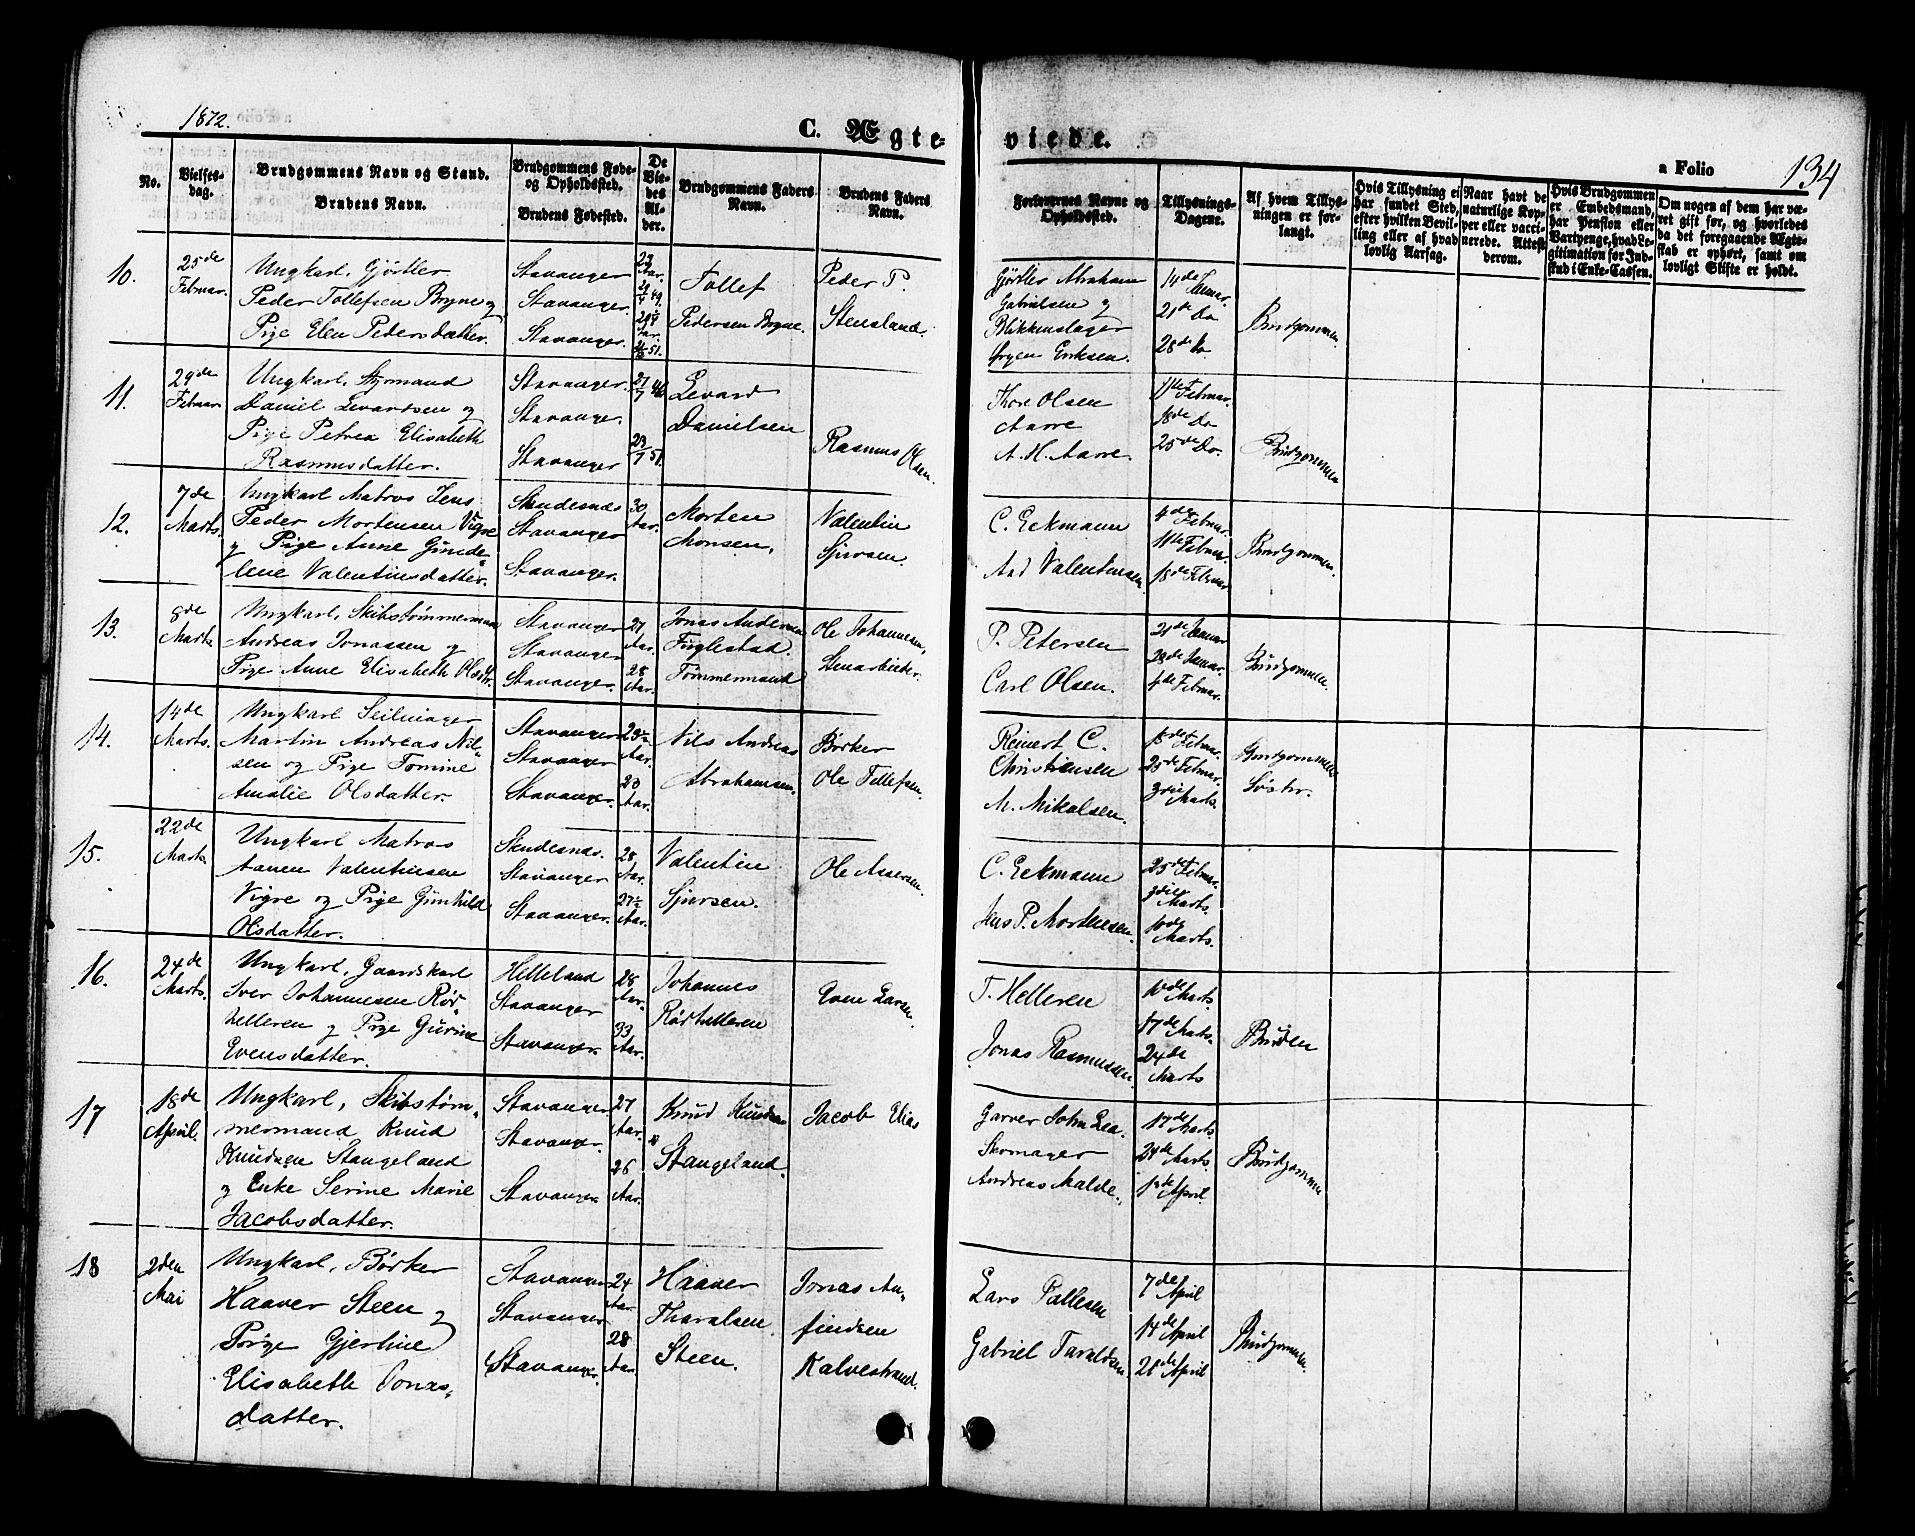 1872.
C. Ægte-
viede.
a Folio
134
No.
Vielses-
dag.
Brudgommens Navn og Stand.
Brudens Navn.
Brudgommens Føde-
og Opholdssted.
Brudens Fødested.
De
Vie-
des
Al-
der.
Brudgommens Faders
Navn.
Brudens Faders
Navn.
Forlovernes Navne og
Opholdssted.
Tillysnings-
Dagene.
Af hvem Tillys-
ningen er for-
langt.
Hvis Tillysning ei
har fundet Sted,
efter hvilken Bevil-
ling eller af hvad
lovlig Aarsag.
Naar havt de
naturlige Kop-
per eller vacci-
nerede. Attest
derom.
Hvis Brudgommen
er Embedsmand,
har Pension eller
Vartpenge, hvad Le-
gitimation for Ind-
skud i Enke-Cassen.
Om nogen af dem har væ-
ret gift før, og hvorledes
da det foregaaende Ægte-
skab er ophørt, samt om
lovligt Skifte er holdt.
10.
25de
Februar.
Ungkarl, Gjørtler
Peder Tollefsen Bryne og
Pige Elen Pedersdatter.
Stavanger
Stavanger.
Stavanger.
Tollef
Pedersen Bryne
Peder P.
Stensland.
Gjørtler Abraham
Gabrielsen og
Blikkenslager
Ørgen Eriksen.
14de Januar.
21de Do
28de Do
Brudgommen
11.
29de
Februar
Ungkarl, Styrmand
Daniel Levardsen og
Pige Petrea Elisabeth
Rasmusdatter.
Stavanger.
Stavanger.
Stavanger
27/7 46
23/7 51.
Levard
Danielsen
Rasmus Olsen.
Thore Olsen
Aarre
A. H. Aarre.
11te Februar.
18de Do
25de Do.
Brudgommen
12.
7de
Marts.
Ungkarl Matros Jens
Peder Mortensen Vigre
og Pige Anne Gunde-
lene Valentinsdatter.
Skudesnæs
Stavanger
Stavanger.
30
Aar.
Morten
Monsen.
Valentin
Sjursen.
C. Eckmann
Aad Valentinsen
4de Februar.
11te Februar
18de Februar
Brudgommen.
13.
8de
Marts
Ungkarl, Skibstømmermand
Andreas Jonassen og
Pige Anne Elisabeth Olsdtr.
Stavanger
Stavanger
Stavanger.
27
Aar.
28
Aar.
Jonas Andersen
Fuglestad.
Tømmermand
Ole Johannesen,
Stenarbeider.
P. Petersen
Carl Olsen.
21de Januar
28de Januar.
4de Februar.
Brudgommen.
14.
14de
Marts.
Ungkarl Seilmager
Martin Andreas Nil-
sen og Pige Tomine
Amalie Olsdatter.
Stavanger
Stavanger
Stavanger.
23½
Aar.
23
Aar.
Nils Andreas
Abrahamsen.
Bødker
Ole Tollefsen.
Reinert C.
Christensen
M. Mikalsen.
18de Februar.
25de Februar.
3die Marts.
Brudgommens
Søster.
15.
22de
Marts.
Ungkarl Matros
Aanen Valentinsen
Vigre og Pige Gunhild
Olsdatter.
Skudesnæs.
Stavanger
Stavanger.
28
Aar.
27½
Aar.
Valentin
Sjursen.
Ole Assersen.
C. Eckmann
Jens P. Mortensen.
25de Februar.
3die
Marts.
10de
Marts.
16.
24de
Marts.
Ungkarl, Gaardskarl
Iver Johannesen Rød-
helleren og Pige Gurine
Evensdatter.
Helleland
Stavanger
Stavanger.
28
Aar.
33
Aar.
Johannes
Rødhelleren
Even Larsen.
T. Helleren
Jonas Rasmussen.
10de Marts.
17de Marts.
24de
Marts
Bruden
17
18de
April.
Ungkarl, Skibstøm-
mermand Knud
Knudsen Stangeland
og Enke Serine Marie
Jacobsdatter.
Stavanger
Stavanger.
Stavanger.
27
Aar.
26
Aar.
Knud Knudsen
Stangeland.
Jacob Elias
Garver John Lea.
Skomager
Andreas Malde.
17de Marts.
24de Marts.
1ste April.
Brudgommen
18
2den
Mai
Ungkarl, Bødker
Haaver Steen og
Pige Gjertine
Elisabeth Jonas-
datter.
Stavanger
Stavanger
Stavanger.
24
Aar.
28
Aar.
Haaver
Tharalsen
Steen.
Jonas An-
findsen
Kalvestrand.
Lars Pallesen
Gabriel Taraldsen
7de April
14de April
21de April
Brudgommen.